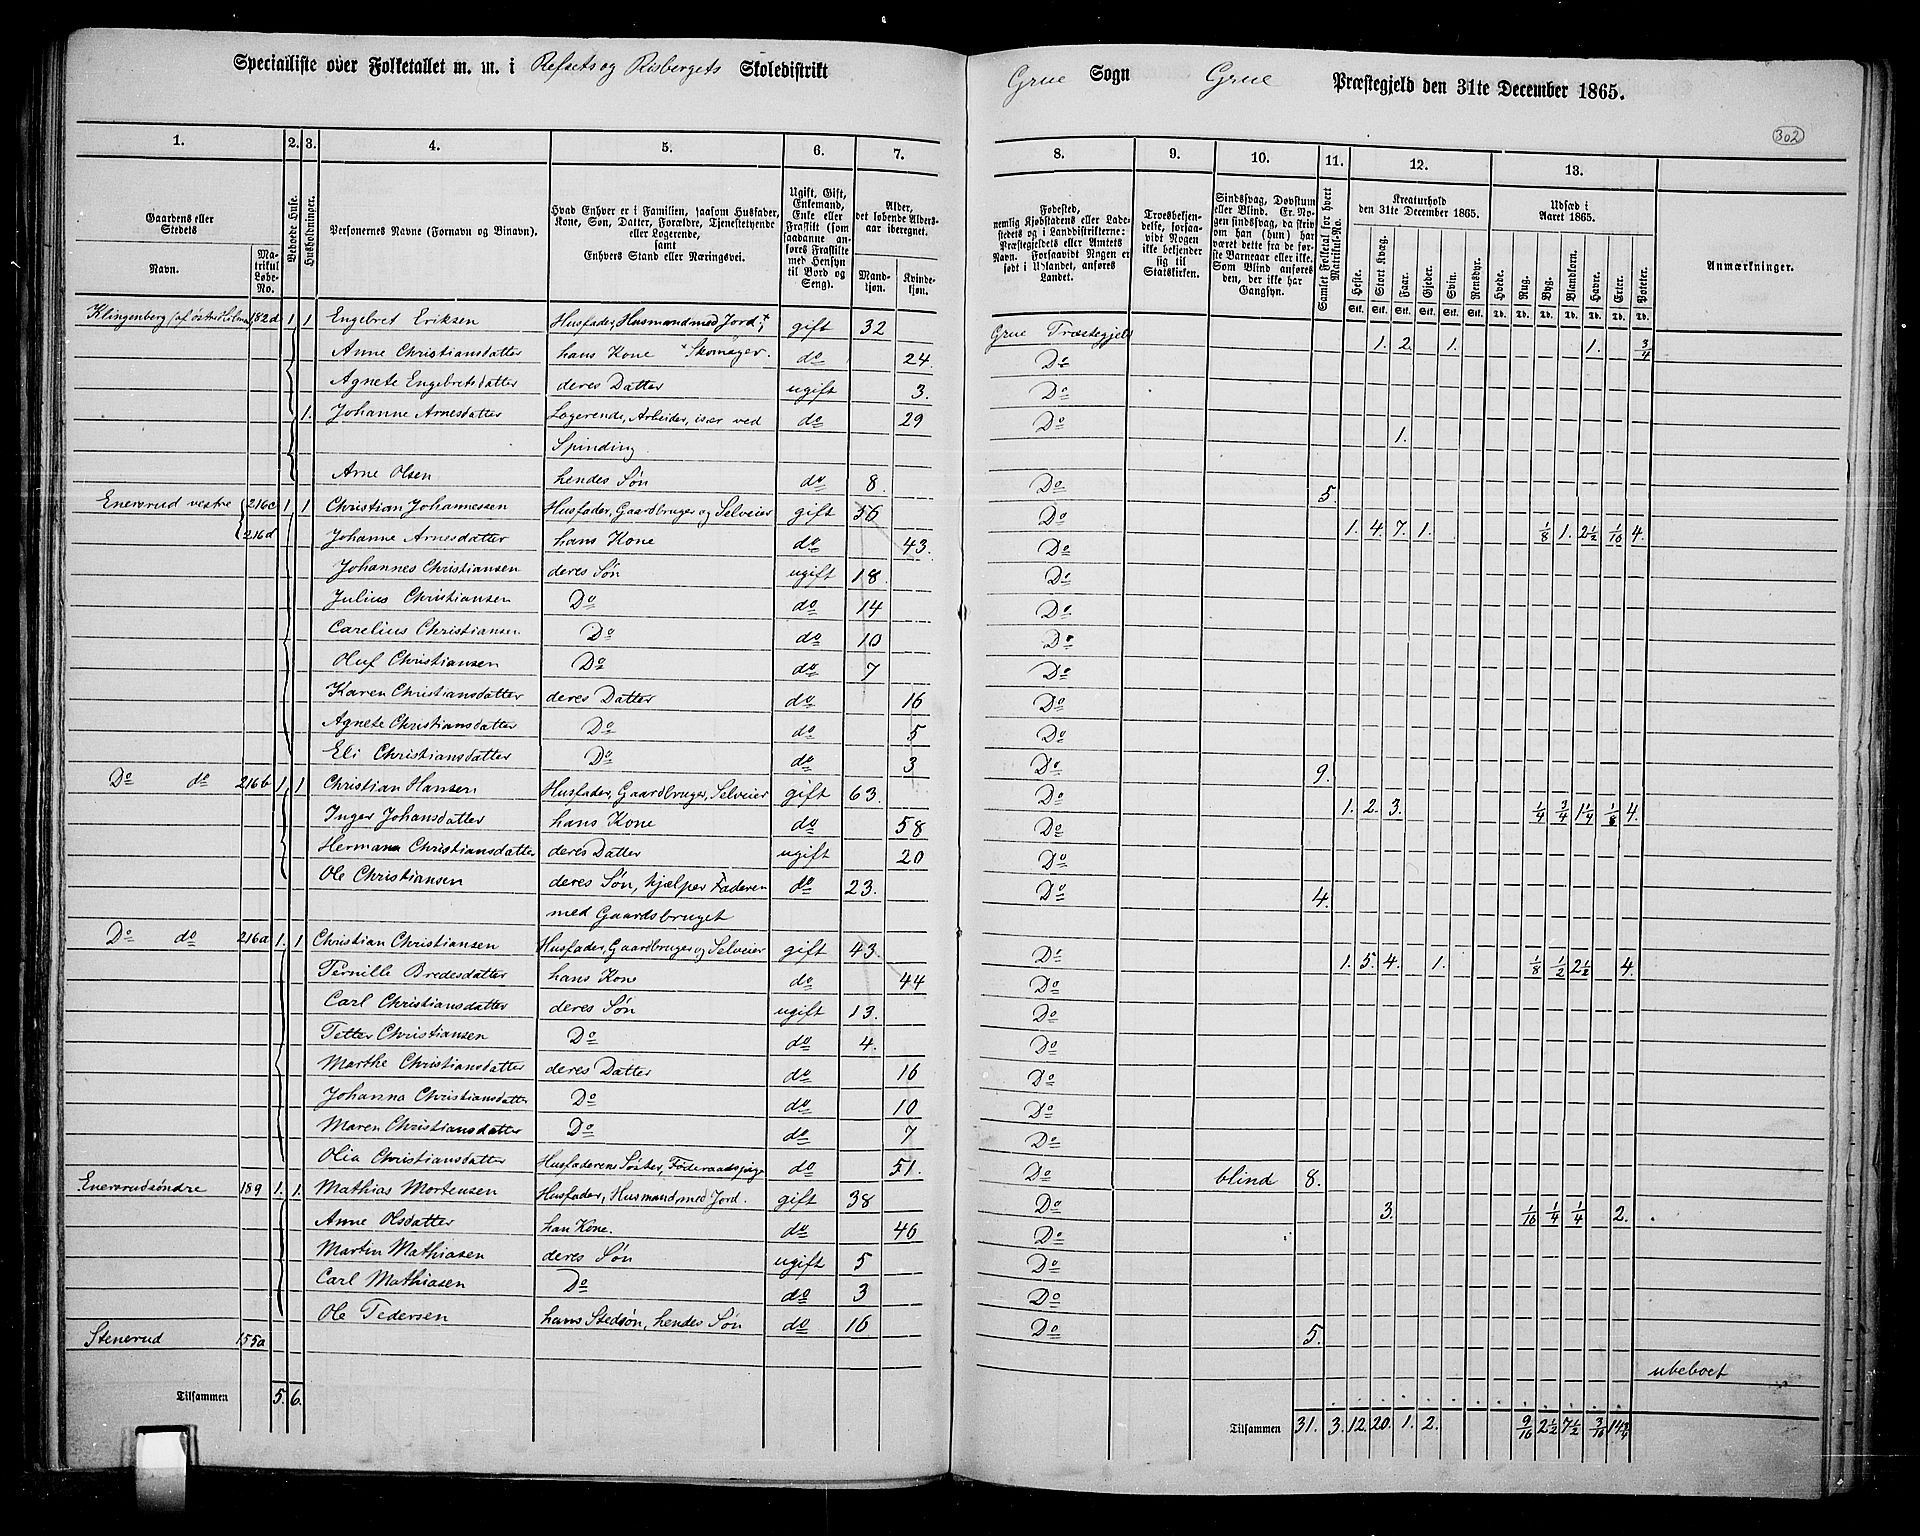 Specialliste over Folketallet m. m. i Refsets og Risbergets Skoledistrikt Grue Sogn Grue Præstegjeld den 31te December 1865.
302
1. 2. 3. 4. 5. 6. 7. 8. 9. 10. 11. 12. 13.
Gaardens eller Stedets
Navn.
Matrikul Løbe-No.
Beboede Huse.
Husholdninger.
Personernes Navne (Fornavn og Binavn).
Hvad Enhver er i Familien, saasom Husfader, Kone, Søn, Datter, Forældre, Tjenestetyende eller Logerende, samt Enhvers Stand eller Næringsvei.
Ugift, Gift, Enkemand, Enke eller Fraskilt (som saadanne anføres Fraskilte med Hensyn til Bord og Seng).
Alder, det løbende Aldersaar iberegnet.
Mandkjøn. Kvindekjøn.
Fødested, nemlig Kjøbstadens eller Ladestedets og i Landdistrikterne: Præstegjeldets eller Amtets Navn. Forsaavidt Nogen er født i Udlandet, anføres Landet.
Troesbekjendelse, forsaavidt Nogen ikke bekjender sig til Statskirken.
Sindssvag, Døvstum eller Blind. Er Nogen sindssvag, da skriv om han (hun) har været dette fra de første Barneaar eller ikke. Som Blind anføres den, der ikke har Gangsyn.
Samlet Folketal for hvert Matrikul-No.
Kreaturhold den 31te December 1865.
Heste. Stort Kvæg. Faar. Gjeder. Svin. Rensdyr.
Stk. Stk. Stk. Stk. Stk. Stk.
Udsæd i Aaret 1865.
Hvede. Rug. Byg. Blandkorn. Havre. Erter. Poteter.
Td. Td. Td. Td. Td. Td. Td.
Anmærkninger.
Klingenberg 182d 1 1 Engebret Eriksen Husfader, Husmand med Jord + gift 32 Grue Præstegjeld 1. 2. 1. 1. 3/4
Anne Christiansdatter hans Kone + Skomager. do 24. Do
Agnete Engebretsdatter deres Datter ugift 3. Do
1. Johanne Arnesdatter Logerende, Arbeider, især ved do 29 Do
Spinding 1.
Arne Olsen hendes Søn do 8. Do 5.
Enersrud vestre 216c 1 1 Christian Johannessen Husfader, Gaardbruger og Selveier gift 56 Do 1. 4. 7. 1. 1/8 1. 2 1/2 1/16 4.
216d Johanne Arnesdatter hans Kone do 43. Do
Johannes Christiansen deres Søn ugift 18. Do
Julius Christiansen Do do 14 Do
Carelius Christiansen Do do 10 Do
Oluf Christiansen Do do 7 Do
Karen Christiansdatter deres Datter do 16 Do
Agnete Christiansdatter Do do 5 Do
Eli Christiansdatter Do do 3 Do 9.
Do do 216b 1. 1 Christian Hansen Husfader, Gaardbruger, Selveier gift 63. Do 1. 2. 3. 1/4 3/4 1 1/4 1/8 4.
Inger Johansdatter hans Kone do 58 Do
Hermana Christiansdatter deres Datter ugift 20 Do
Ole Christiansen deres Søn, hjælper Faderen do 23. Do 4.
med Gaardsbruget
Do do 216a 1. 1 Christian Christiansen Husfader, Gaardbruger og Selveier gift 43. Do 1. 5. 4. 1. 1/8 1/2 2 1/2 4.
Pernille Bredesdatter hans Kone do 44 Do
Carl Christiansdatter deres Søn ugift 13. Do
Petter Christiansen Do do 4. Do
Marthe Christiansdatter deres Datter do 16 Do
Johanna Christiansdatter Do do 10 Do
Maren Christiansdatter Do do 7 Do
Olia Christiansdatter Husfaderens Søster, Føderaadspige do 51. Do blind 8.
Enersrud søndre 189 1. 1. Mathias Mortensen Husfader, Husmand med Jord. gift 38 Do 3. 1/16 1/4 1/4 2.
Anne Olsdatter han Kone. do 46 Do
Martin Mathiasen deres Søn ugift 5 Do
Carl Mathiasen Do do 3 Do
Ole Pedersen hans Stedsøn, hendes Søn do 16 Do 5.
Stenerud 155a ubeboet
Tilsammen 5. 6. Tilsammen 31. 3. 12. 20. 1. 2. 9/16 2 1/2 7 1/2 3/16 14 3/4